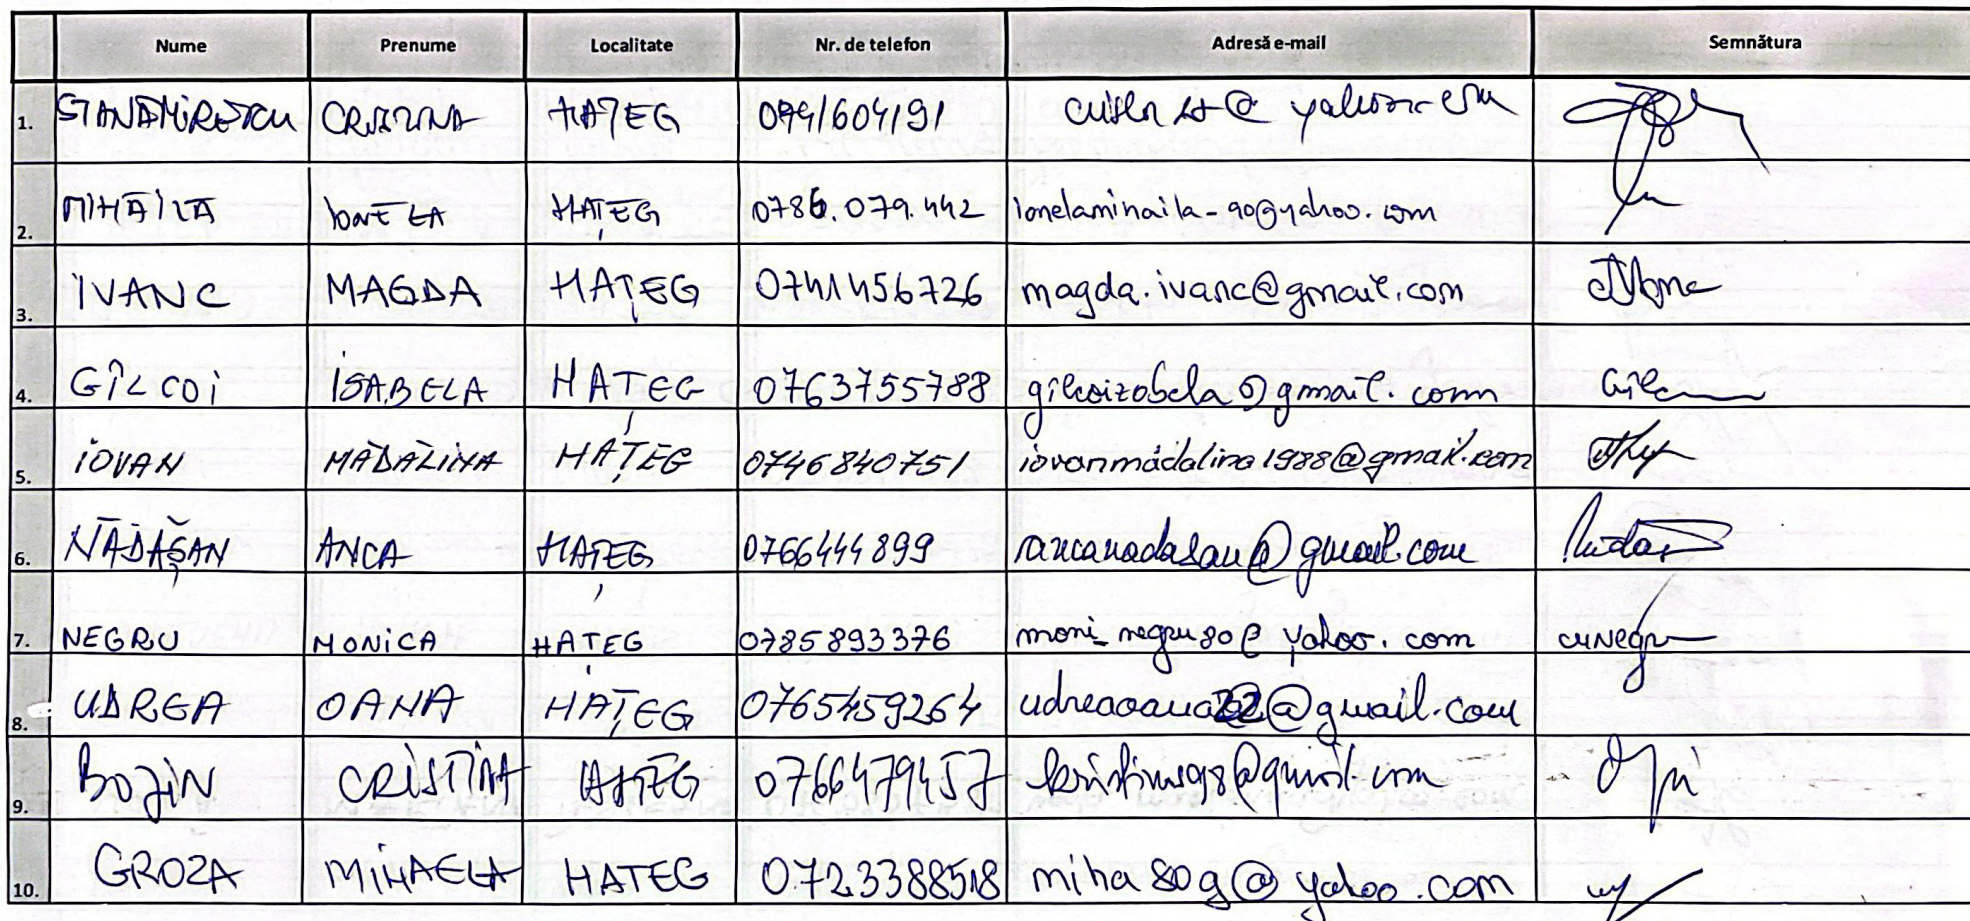 Nume Prenume Localitate Nr. de telefon Adresă e-mail Semnătura
1. HAȚEG 0741604191
2. MIHĂILĂ IONELA HAȚEG 0786.079.442 ionelamihaila-90@yahoo.com
3. IVANC MAGDA HAȚEG 0741456726 magda.ivanc@gmail.com
4. GÎLCOI ISABELA HAȚEG 0763755788 gilcoizabela@gmail.com
5. IOVAN MĂDĂLINA HAȚEG 0746840751 iovanmădălina1988@gmail.com
6. NĂDĂȘAN ANCA HAȚEG 0766444899 ancanadasan@gmail.com
7. NEGRU MONICA HAȚEG 0785893376 moni_negru80@yahoo.com
8. UDREA OANA HAȚEG 0765459264 udreaoana22@gmail.com
9. BOJIN CRISTINA HAȚEG 0766479457
10. GROZA MIHAELA HATEG 0723388518 miha80g@yahoo.com